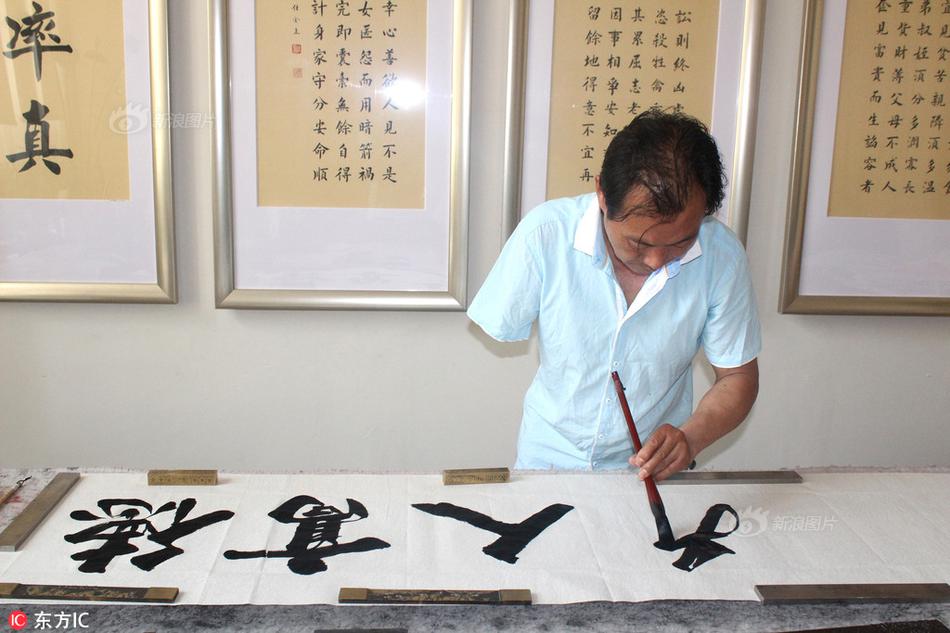 率真
幸心善欲人見不是
女匿怨而用暗箭禍
完即囊橐無餘自得
計身家守分安命順
訟則終凶處
恣殺牲禽
其累屈志老
因事相爭安知
留餘地得意不宜再
見貧苦親鄰須多溫
弟叔姪須分多潤寡長
重貲財薄父母不成人
奩見富貴而生諂容者
新浪图片
新浪图片
IC 东方IC